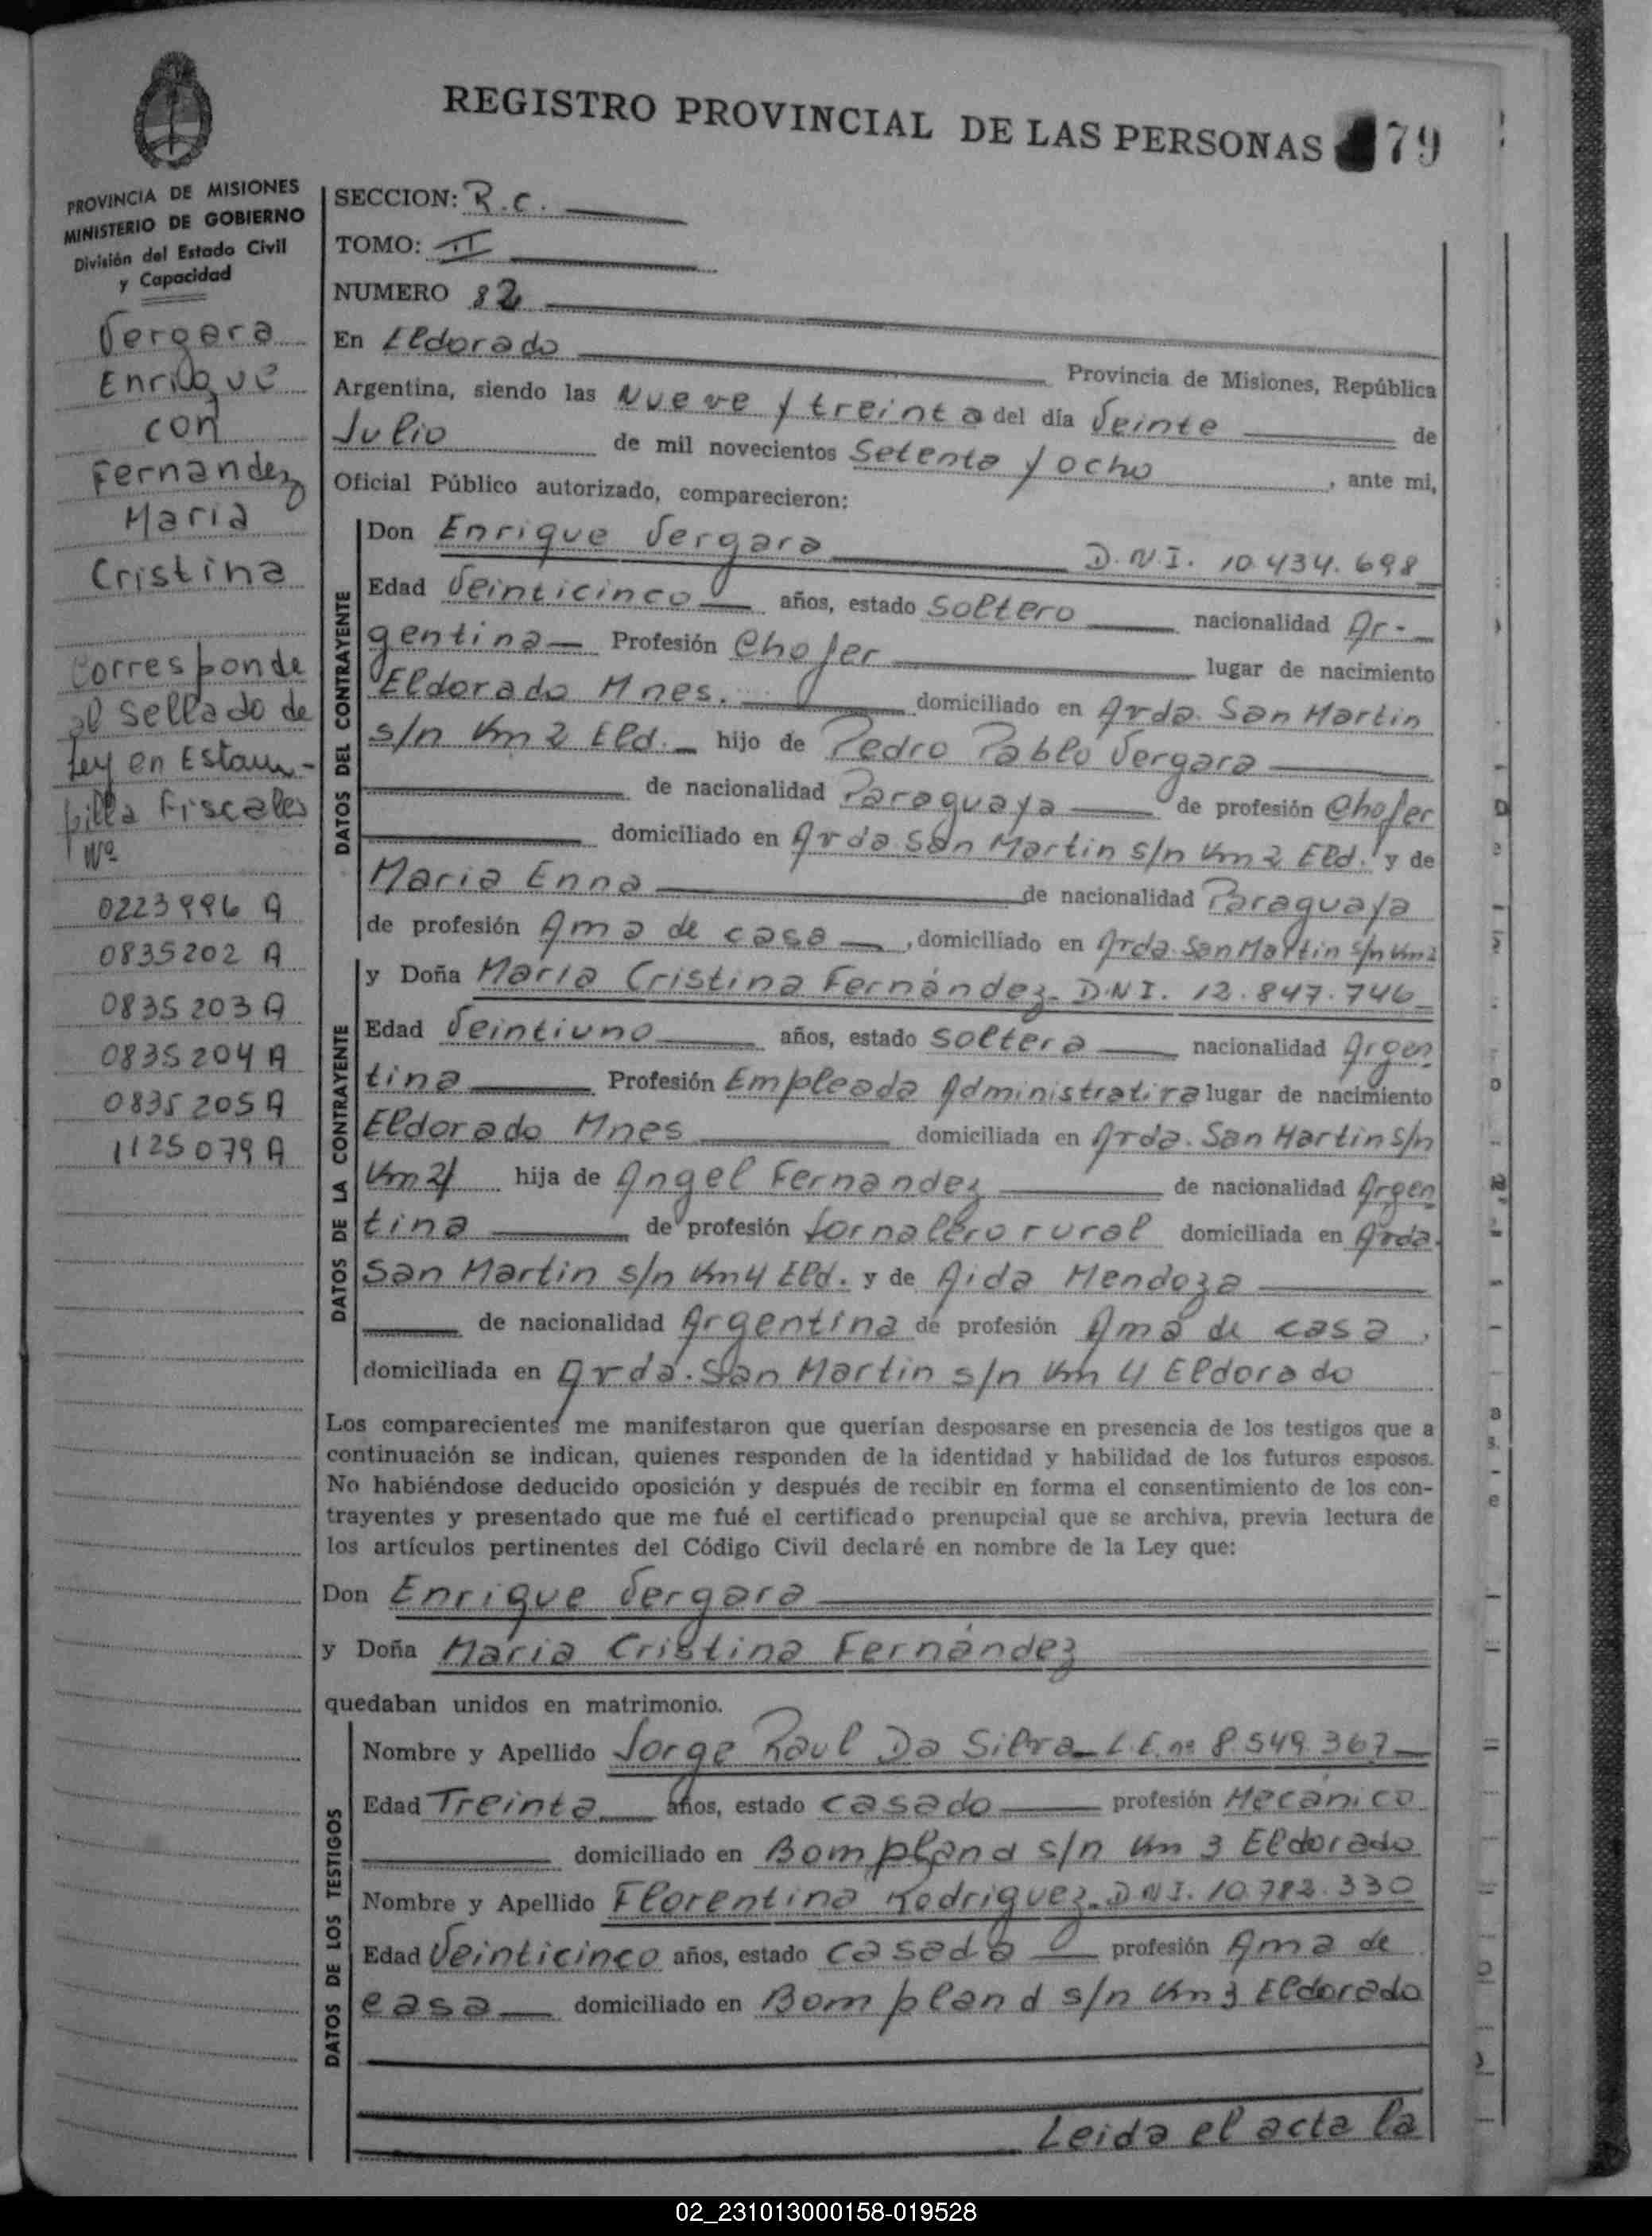 REGISTRO PROVINCIAL DE LAS PERSONAS 79
PROVINCIA DE MISIONES
MINISTERIO DE GOBIERNO
División del Estado Civil
y Capacidad
Vergara
Enrique
con
Fernandez
Maria
Cristina
Corresponde
al Sellado de
Ley en Estam-
pilla Fiscales
Nº
0223996 A
0835202 A
0835203 A
0835204 A
0835205 A
1125079 A
SECCION: R.C.
TOMO: II
NUMERO 82
En Eldorado Provincia de Misiones, República
Argentina, siendo las Nueve y treinta del día Veinte de
Julio de mil novecientos Setenta y ocho, ante mi,
Oficial Público autorizado, comparecieron:
DATOS DEL CONTRAYENTE
Don Enrique Vergara D.N.I. 10.434.698
Edad Veinticinco años, estado Soltero nacionalidad Ar-
gentina Profesión Chofer lugar de nacimiento
Eldorado Mnes. domiciliado en Avda. San Martin
s/n Km 2 Eld. hijo de Pedro Pablo Vergara
de nacionalidad Paraguaya de profesión Chofer
domiciliado en Avda San Martin s/n Km 2 Eld. y de
Maria Enna de nacionalidad Paraguaya
de profesión Ama de casa, domiciliado en Avda. San Martin s/n Km 2
DATOS DE LA CONTRAYENTE
y Doña Maria Cristina Fernández D.N.I. 12.847.746
Edad Veintiuno años, estado Soltera nacionalidad Argen
tina Profesión Empleada Administrativa lugar de nacimiento
Eldorado Mnes domiciliada en Avda. San Martin s/n
Km 4 hija de Angel Fernandez de nacionalidad Argen
tina de profesión Jornalero rural domiciliada en Avda.
San Martin s/n Km 4 Eld. y de Aida Mendoza
de nacionalidad Argentina de profesión Ama de casa,
domiciliada en Avda. San Martin s/n Km 4 Eldorado
Los comparecientes me manifestaron que querían desposarse en presencia de los testigos que a
continuación se indican, quienes responden de la identidad y habilidad de los futuros esposos.
No habiéndose deducido oposición y después de recibir en forma el consentimiento de los con-
trayentes y presentado que me fué el certificado prenupcial que se archiva, previa lectura de
los artículos pertinentes del Código Civil declaré en nombre de la Ley que:
Don Enrique Vergara
y Doña Maria Cristina Fernández
quedaban unidos en matrimonio.
DATOS DE LOS TESTIGOS
Nombre y Apellido Jorge Raul Da Silva L.E. nº 8.549.367
Edad Treinta años, estado casado profesión Mecánico
domiciliado en Bompland s/n Km 3 Eldorado
Nombre y Apellido Florentina Rodriguez D.N.I. 10.782.330
Edad Veinticinco años, estado casada profesión Ama de
casa domiciliado en Bompland s/n Km 3 Eldorado
Leida el acta la
02_231013000158-019528